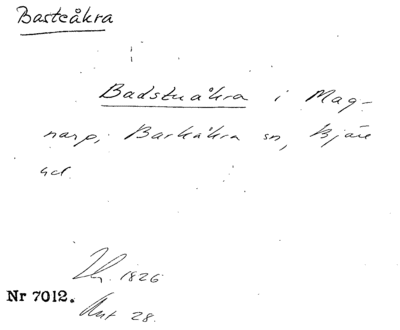 Basteåkra
Badstuåkra i Mag-
narp, Barkåkra sn, Bjäre
hd
1826
Nr 7012.
Akt 28.